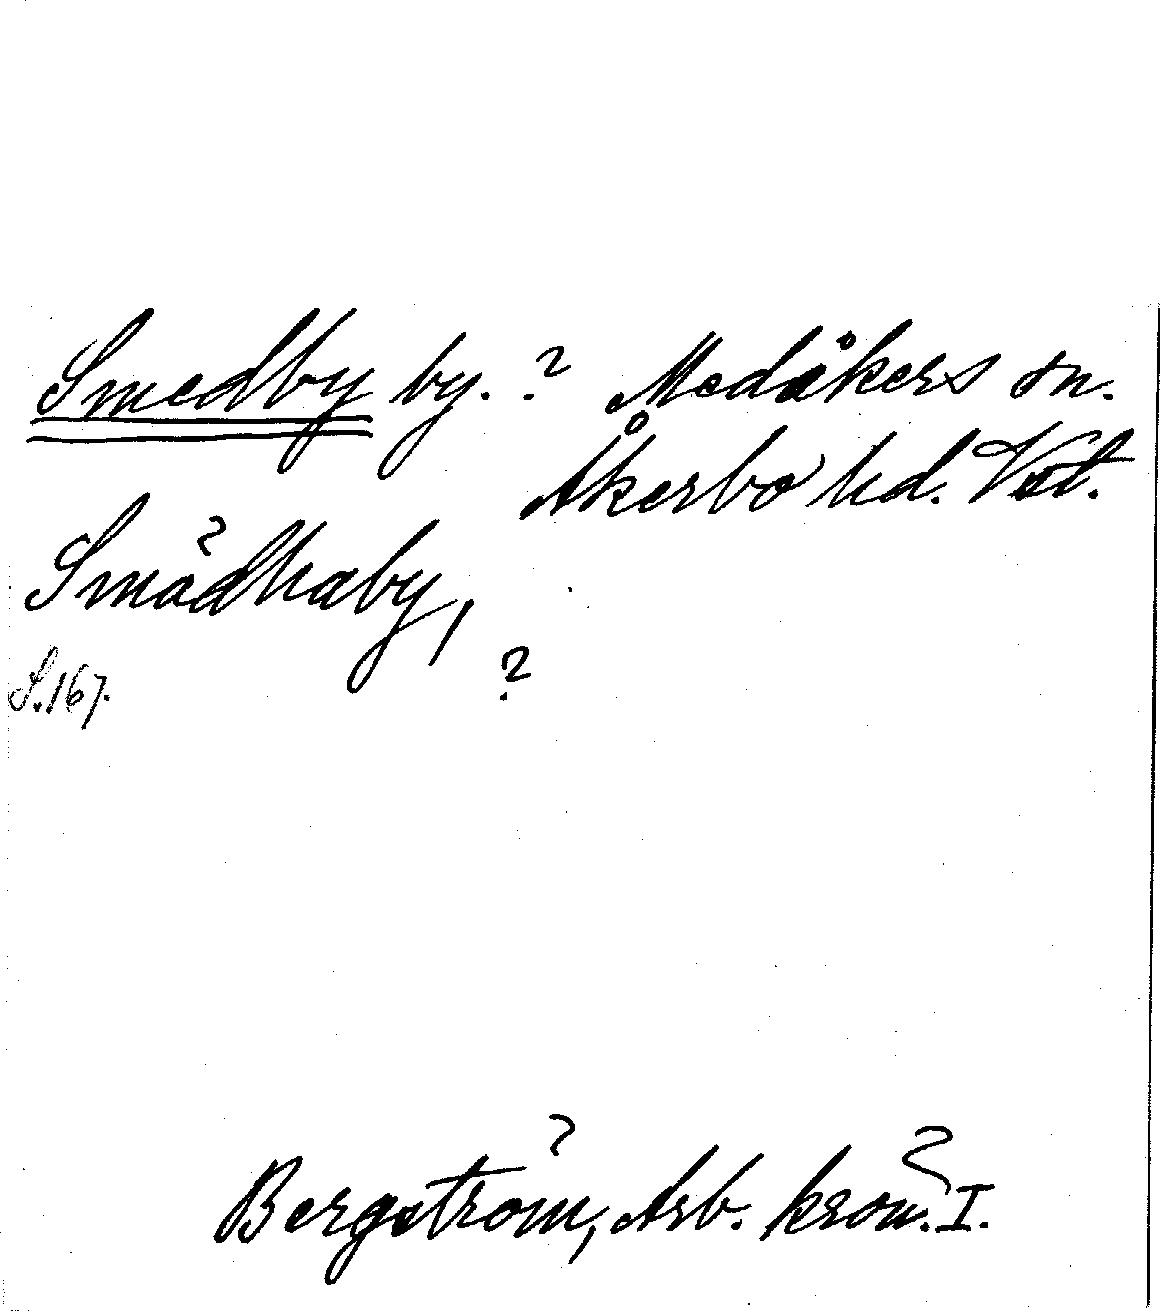 Smedby by. ? Medåkers sn.
Åkerbo hd. Vstl.
Smådhaby,
?
S. 167.
Bergström, Arb. krön. I.